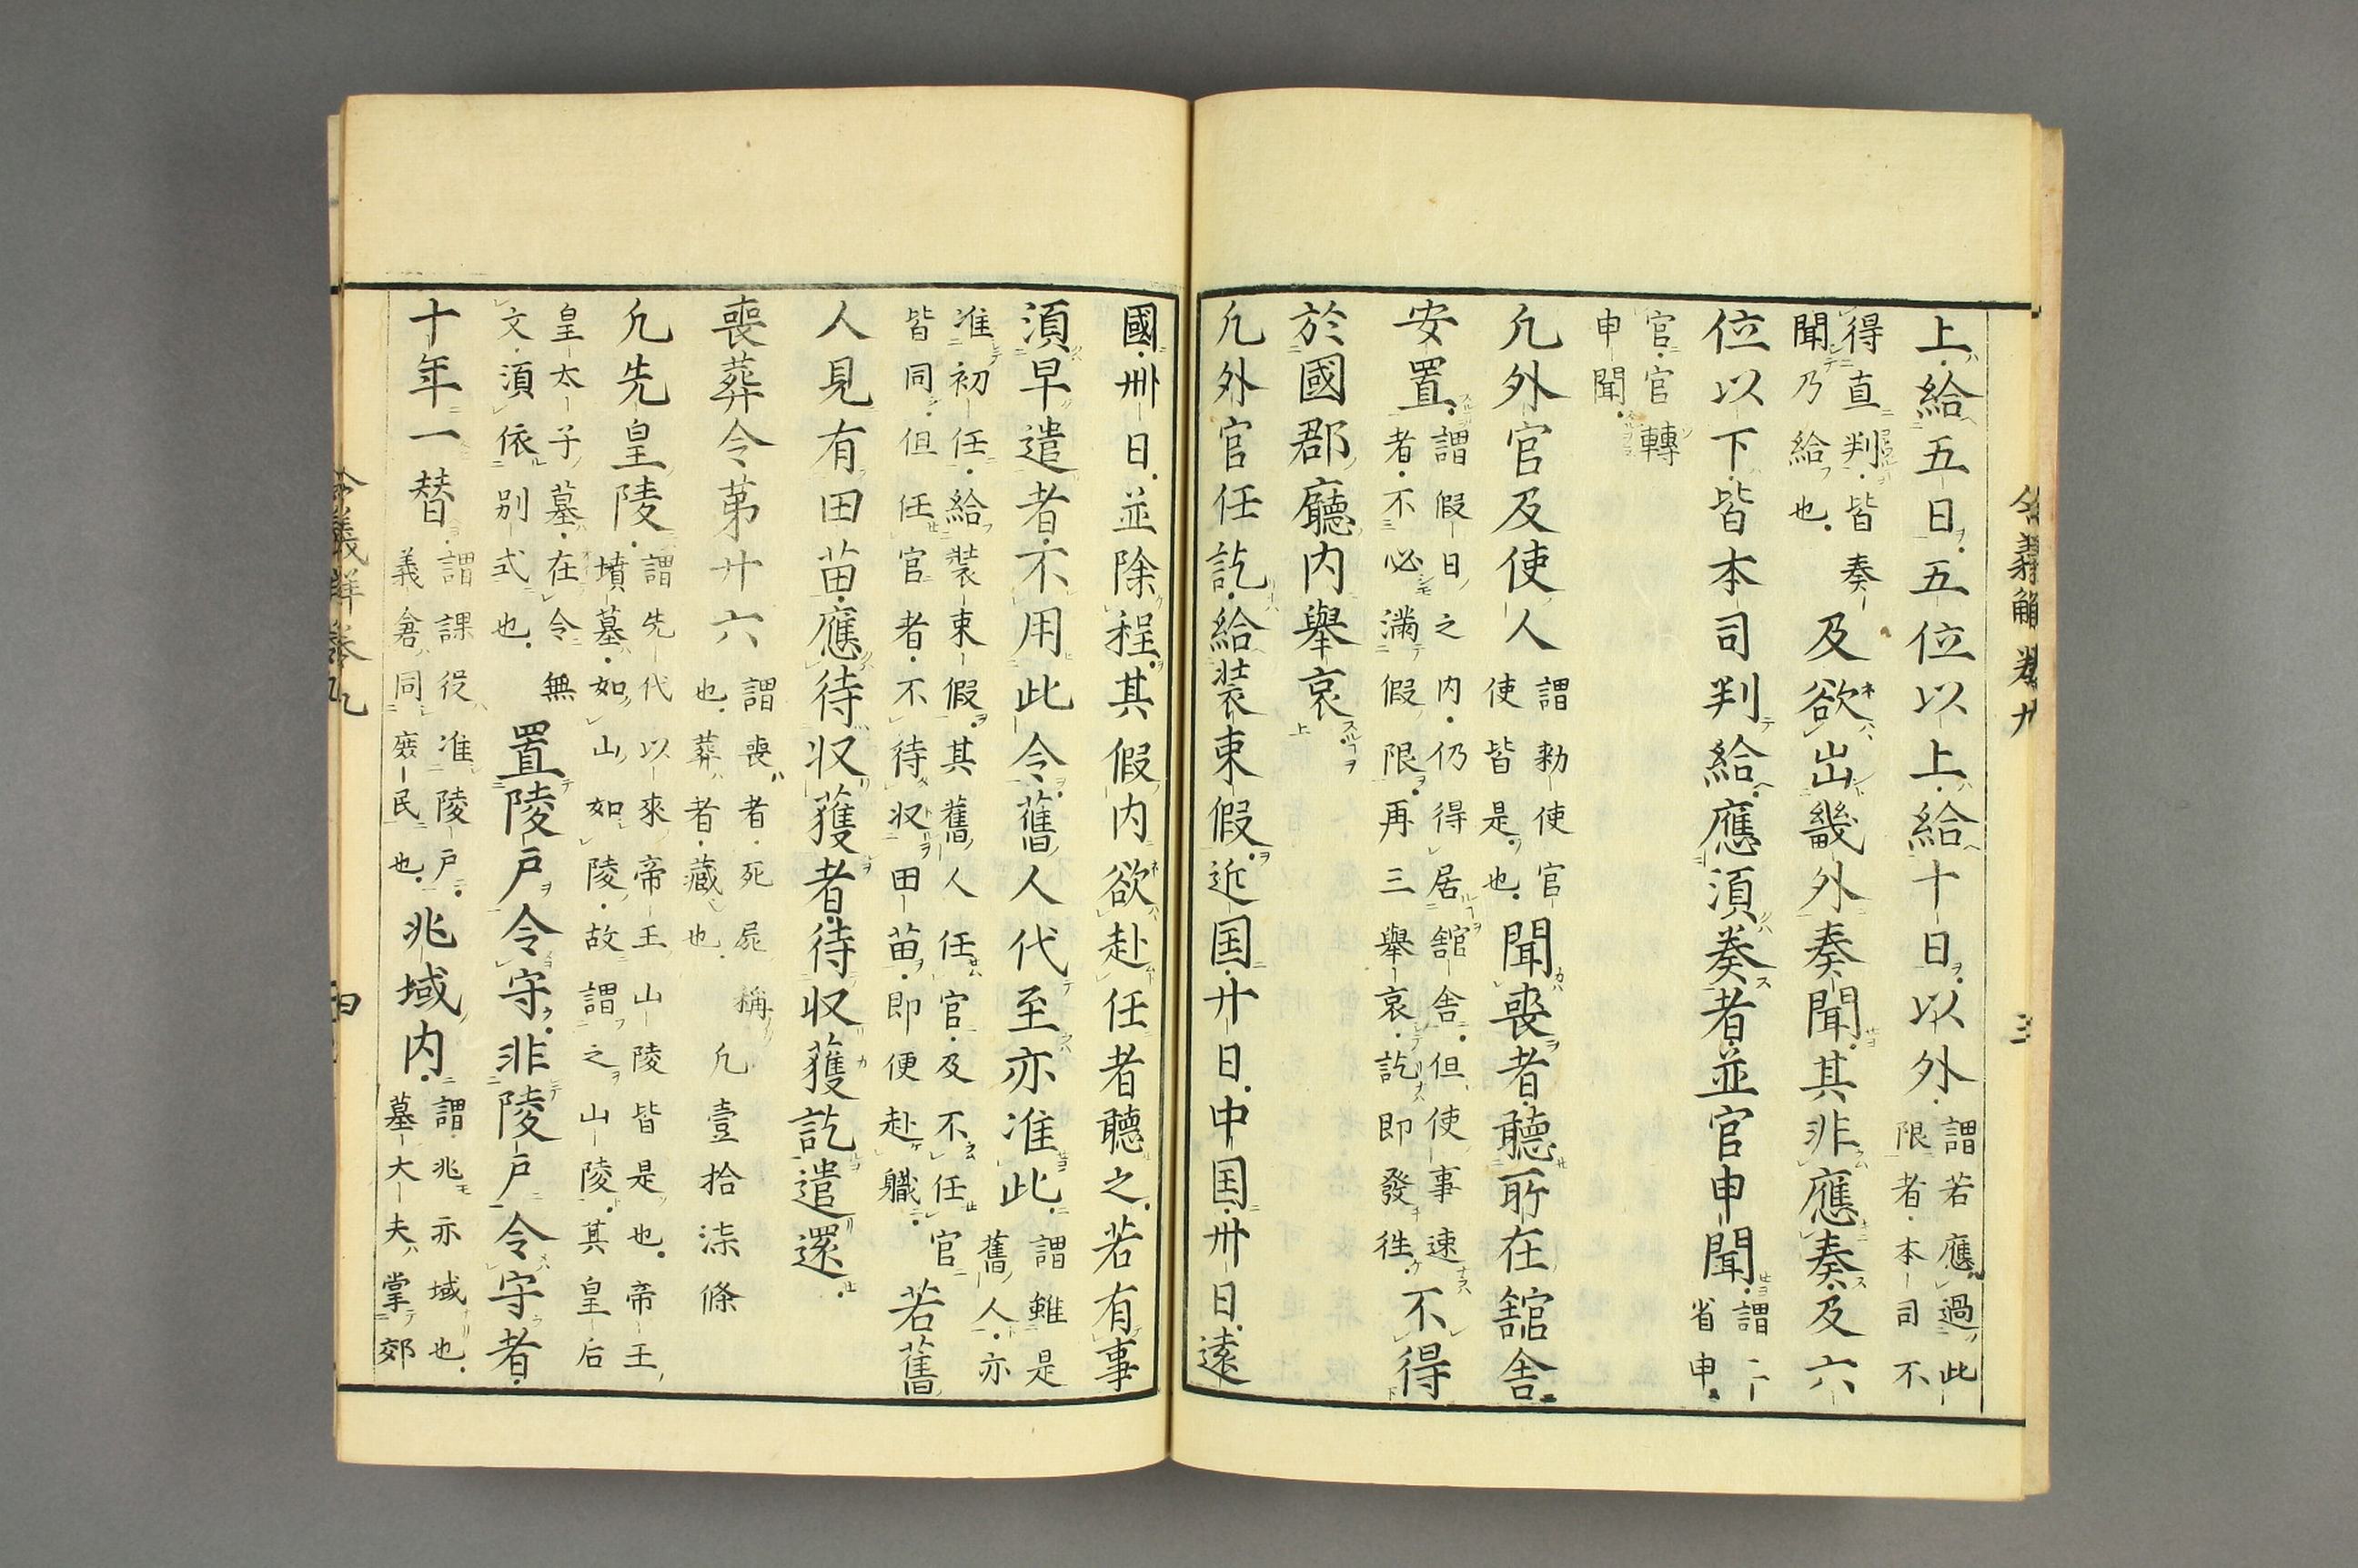 上給五日五位以上給十日以外謂若應過此
限者本司不
得直判皆奏
聞乃給也及欲出畿外奏聞其非應奏及六
位以下皆本司判給應須奏者並官申聞謂二
省申
官官轉
申聞
凡外官及使人謂勅使官
使皆是也聞喪者聽所在舘舎
安置謂假日之内仍得居舘舎但使事速
者不必満假限再三舉哀訖即發徃不得
於國郡廳内舉哀
凡外官任訖給装束假近国廾日中国丗日遠
國卌日並除程其假内欲赴任者聽之若有事
須早遣者不用此令舊人代至亦准此謂雖是
舊人亦
准初任給装束假其舊人任官及不任官
皆同但任官者不待収田苗即便赴職若舊
人見有田苗應待収獲者待収獲訖遣還
喪葬令苐廾六謂喪者死屍稱
也葬者藏也凡壹拾柒條
凡先皇陵謂先代以來帝王山陵皆是也帝王
墳墓如山如陵故謂之山陵其皇后
皇太子墓在令無
文須依別式也置陵戸令守非陵戸令守者
十年一替謂課役准陵戸
義倉同庶民也兆域内謂兆亦域也
墓大夫掌郊
令義解巻九
三
令義解巻九
四